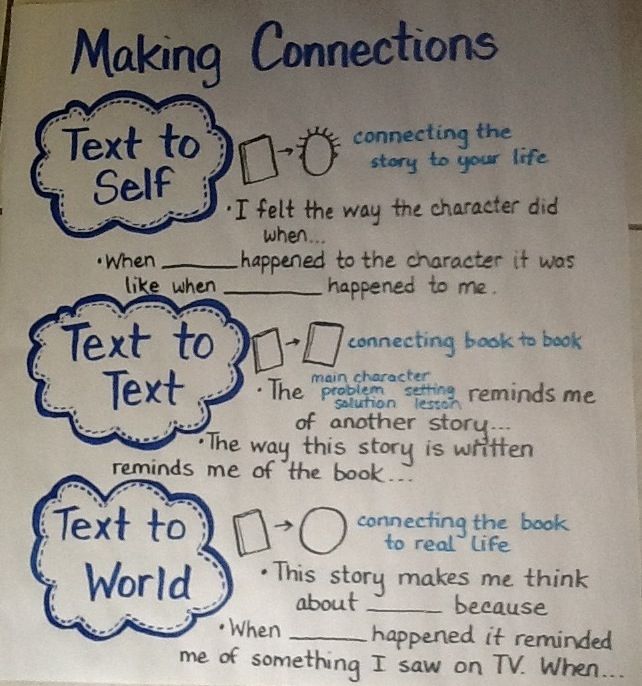 Making Connections
Text to
Self
connecting the
story to your life
• I felt the way the character did
when...
• When ______ happened to the character it was
like when ________ happened to me.
Text to
Text
connecting book to book
• The main character problem setting solution lesson reminds me
of another story...
• The way this story is written
reminds me of the book...
Text to
World
connecting the book
to real life
• This story makes me think
about ______ because
• When ______ happened it reminded
me of something I saw on TV. When...